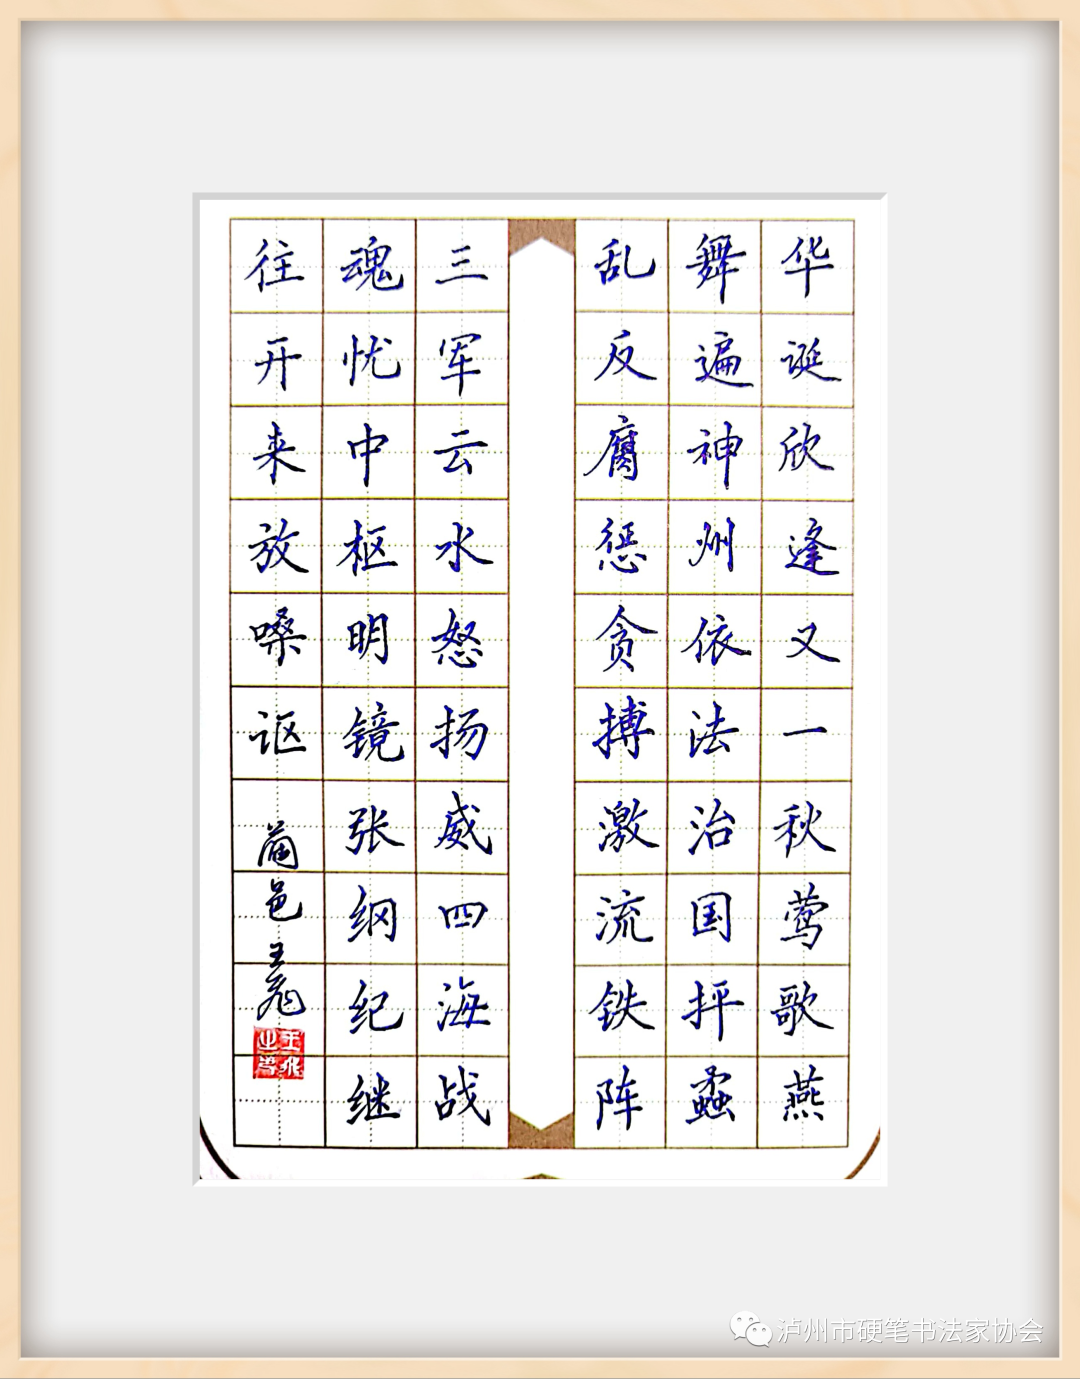 华诞欣逢又一秋莺歌燕
舞遍神州依法治国抨蝥
乱反腐惩贪搏激流铁阵
三军云水怒扬威四海战
魂忧中枢明镜张纲纪继
往开来放嗓讴
邑王
泸州市硬笔书法家协会